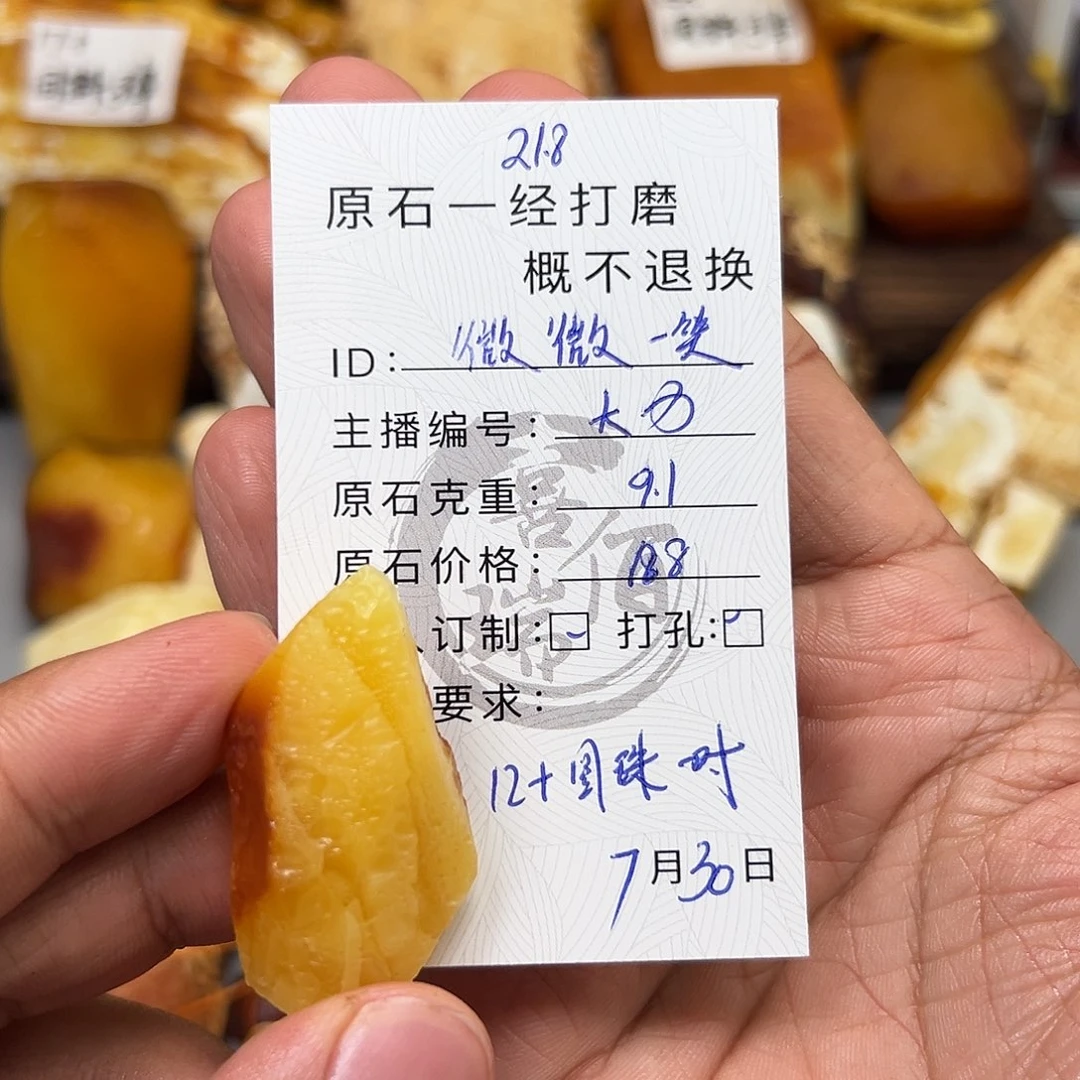 218
原石一经打磨
概不退换
ID: 微微一笑
主播编号: 大力
原石克重: 9.1
原石价格: 188
订制: 打孔:
要求:
12+圆珠一对
7月30日
喜佰瑞